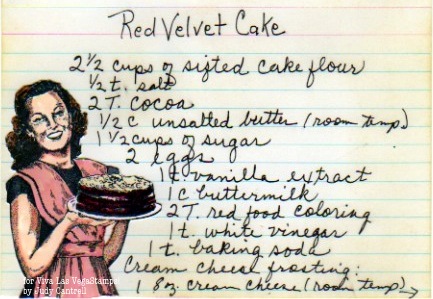 Red Velvet Cake
2 1/2 cups of sifted cake flour
1/2 t. salt
2 T. cocoa
1/2 c unsalted butter (room temp.)
1 1/2 cups of sugar
2 eggs
1 t. vanilla extract
1 c buttermilk
2 T. red food coloring
1 t. white vinegar
1 t. baking soda
Cream cheese frosting:
1 8 oz. cream cheese (room temp.) →
for Viva Las VegaStamps
by Judy Cantrell